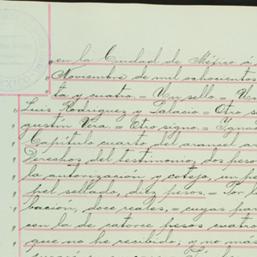 en la Ciudad de México á
Noviembre de mil ochocientos
ta y cuatro. = Un sello =
Luis Rodriguez y Palacio = Otro
gustin Vera. = Otro signo. =
Capítulo cuarto del arancel
Derechos del testimonio, dos pesos
la autorización y cotejo, un
pel sellado, diez pesos. =
bación, doce reales, = cuyas
son la de catorce pesos cuatro
que no he recibido; y no más